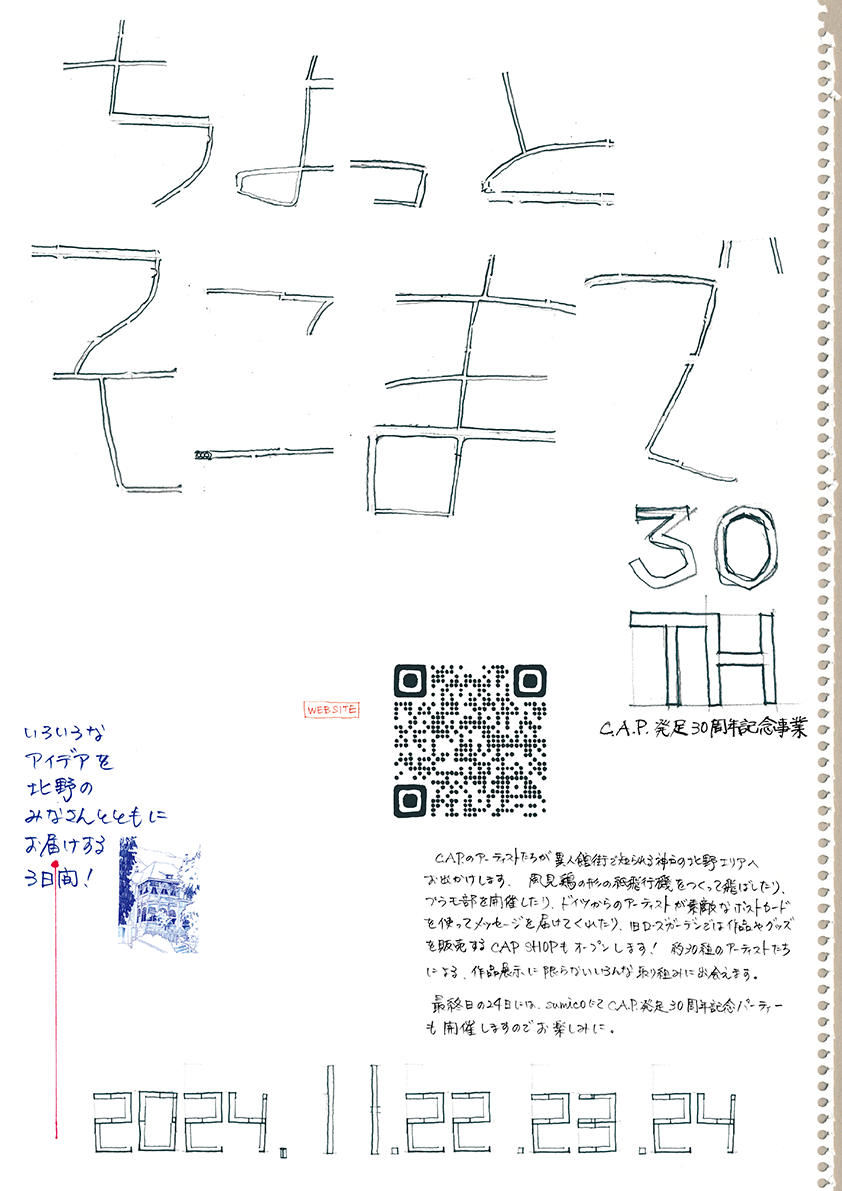 ちょっと
そこまで
30
TH
C.A.P. 発足30周年記念事業
WEBSITE
いろいろな
アイデアを
北野の
みなさんとともに
お届けする
3日間!
C.A.P.のアーティストたちが異人館街で知られる神戸の北野エリアへ
お出かけします。風見鶏の形の紙飛行機をつくって飛ばしたり、
プラモ部を開催したり、ドイツからのアーティストが素敵なポストカード
を使ってメッセージを届けてくれたり、旧ローズガーデンでは作品やグッズ
を販売するCAP SHOPもオープンします! 約30組のアーティストたち
による、作品展示に限らないいろんな取り組みに出会えます。
最終日の24日には、sumicoにてC.A.P.発足30周年記念パーティー
も開催しますのでお楽しみに。
2024.11.22.23.24